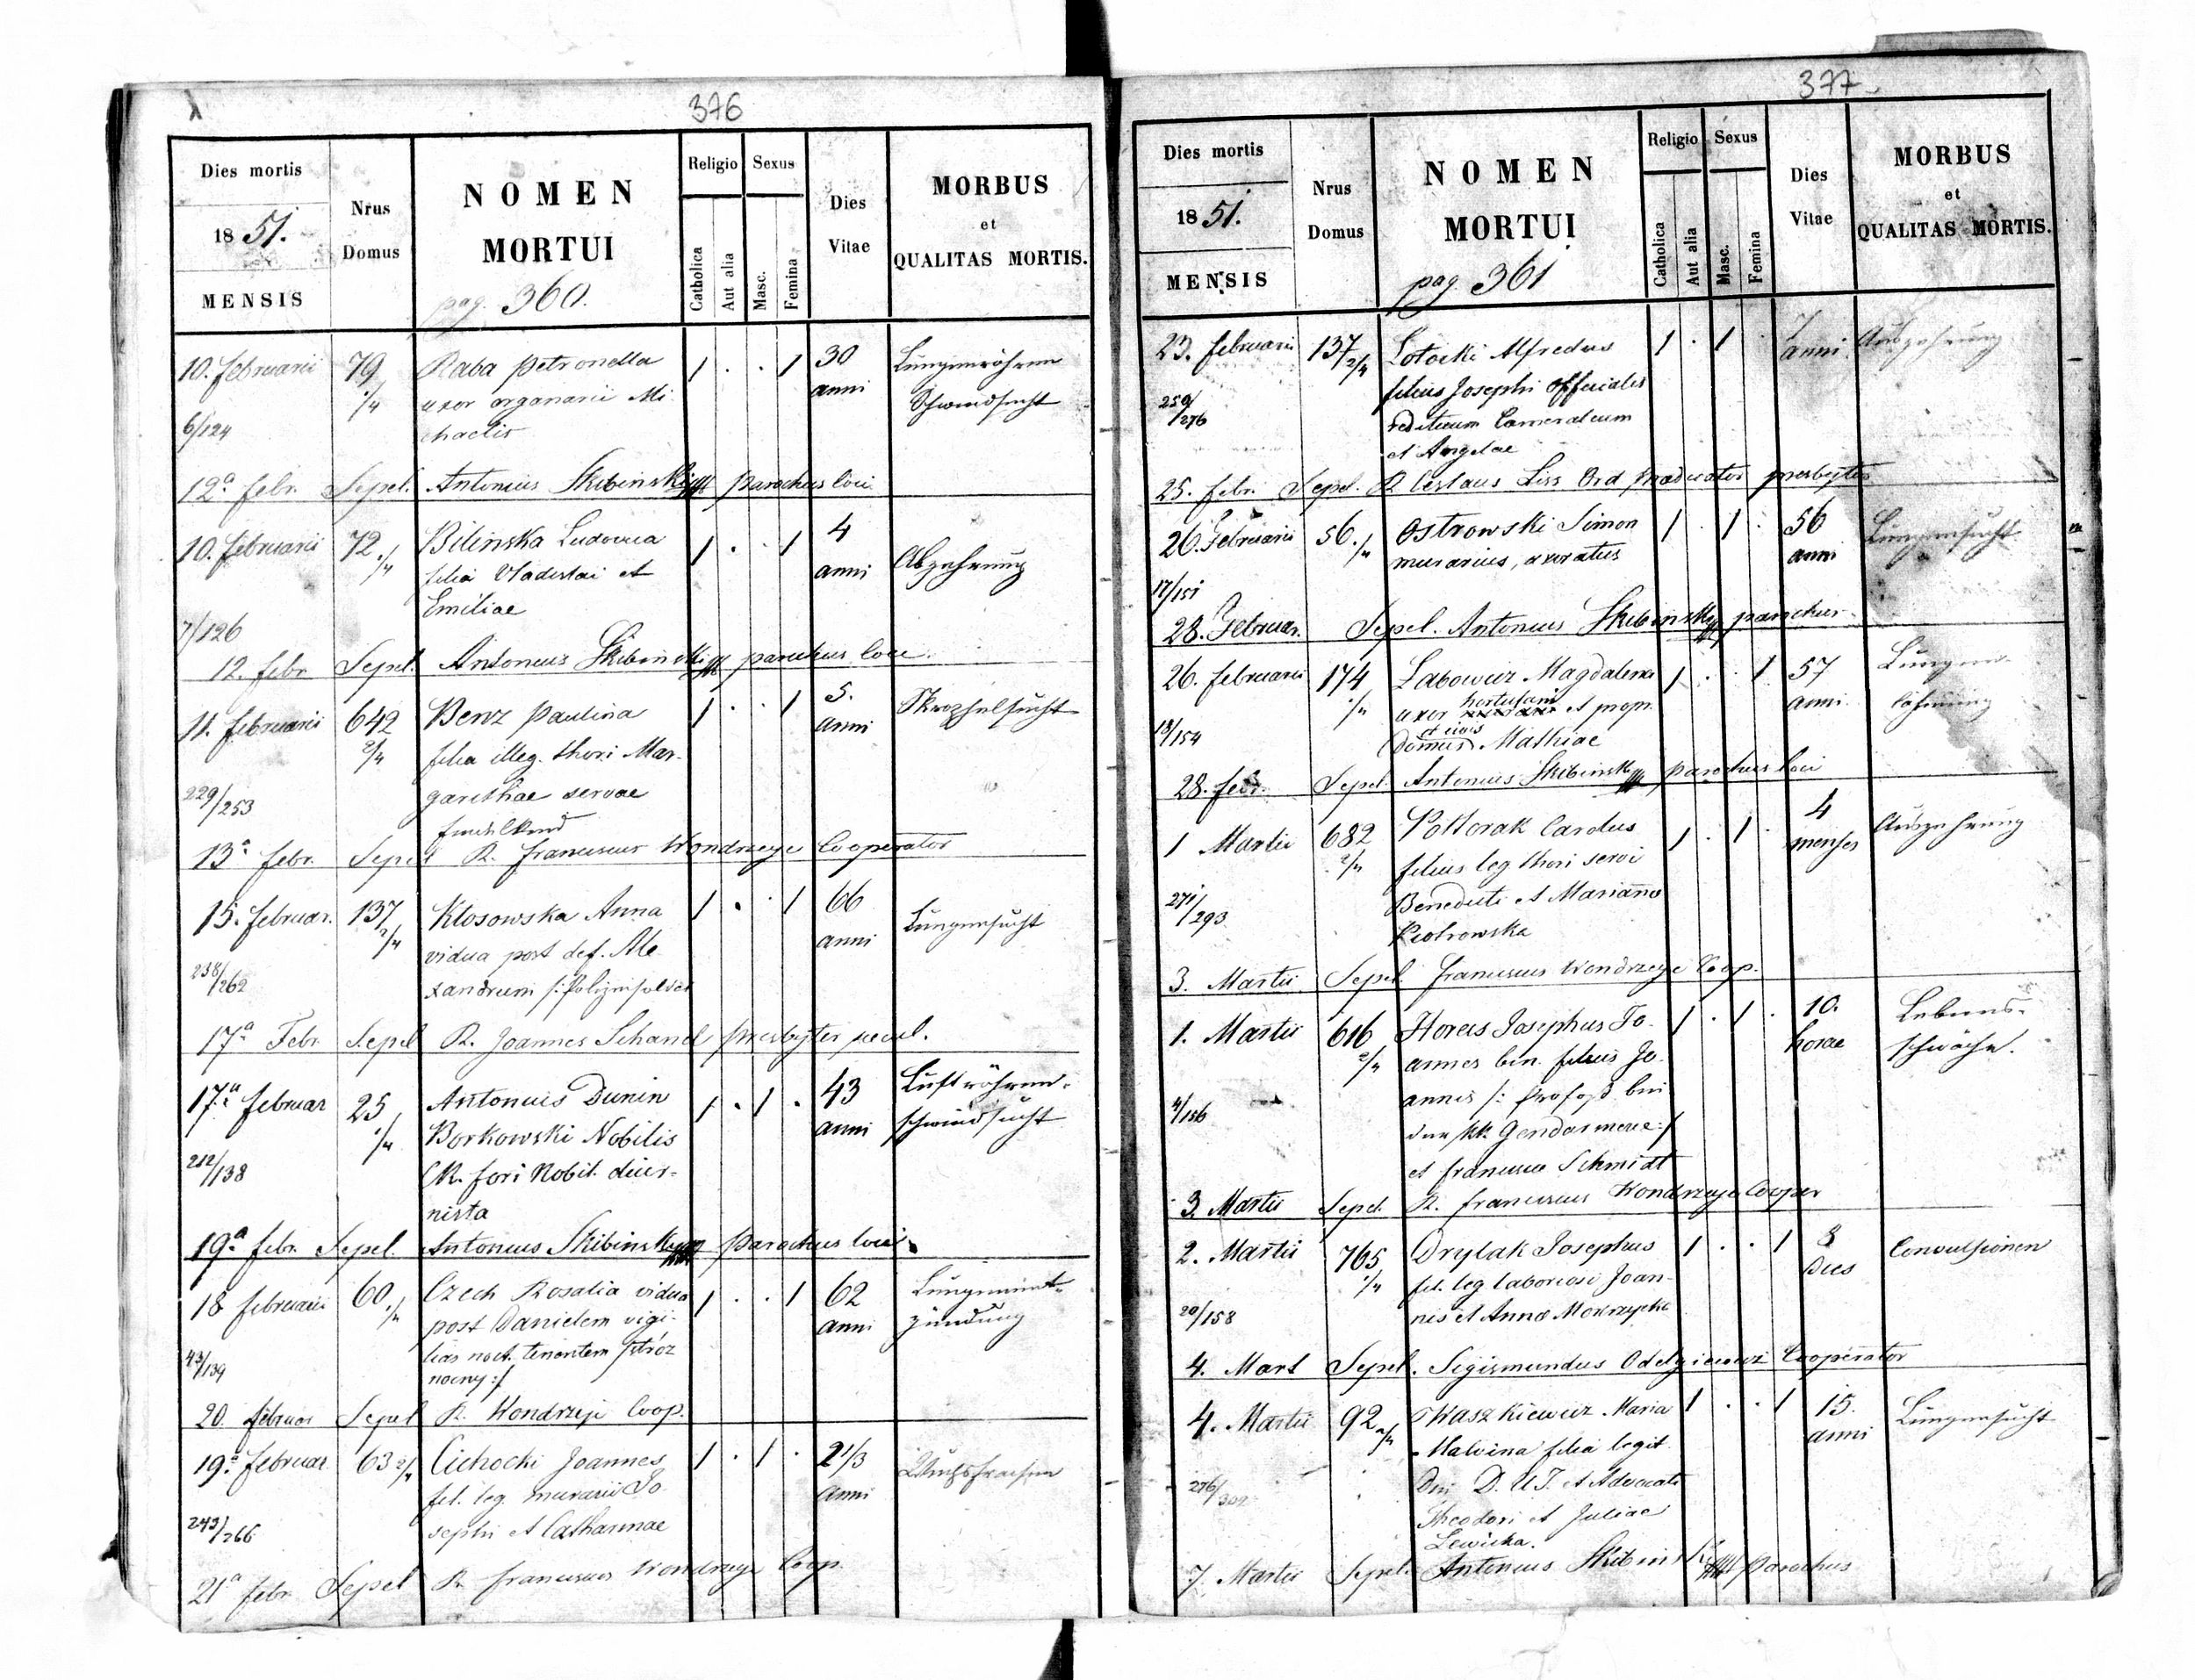 376
Dies mortis
1851.
MENSIS
Nrus
Domus
NOMEN
MORTUI
pag. 360.
Religio
Catholica
Aut alia
Sexus
Masc.
Femina
Dies
Vitae
MORBUS
et
QUALITAS MORTIS.
10. februarii 79 Raba Petronella 1 . . 1 30 Lungenröhren
1/4 uxor organarii Mi anni Schwindsucht
6/124 chaelis
12a febr. Sepel. Antonius Skibinski parochus loci
10. februarii 72. Bilinska Ludovica 1 . . 1 4
1/4 filia Vladislai et anni Abzehrung
Emiliae
7/126
12. febr Sepel. Antonius Skibinski parochus loci
11. februarii 642 Benz Paulina 1 . . 1 5. Skrophelsucht
2/4 filia illeg. thori Mar- anni
229/253 garethae servae
13a febr. Sepel R. Franciscus Wondrzeye Cooperator
15. februar. 137 Kłosowska Anna 1 . . 1 66 Lungensucht
2/4 vidua post def. Ale anni
238/262 xandrum
17a Febr. Sepel R. Joannes Schand presbyter
17a februar 25 Antonius Dunin 1 . 1 . 43 Luftröhren-
1/4 Borkowski Nobilis anni schwindsucht
212/138 CR. fori Nobil. diur-
nista
19a febr. Sepel. Antonius Skibinski parochus loci
18 februarii 60. Czech Rosalia vidua 1 . . 1 62 Lungenent-
1/4 post Danielem vigi- anni zündung
43/139 lias noct. tenentem stróz
nocny:/
20. februar Sepel R. Wondrzeje Coop.
19a februar 63 2/4 Cichocki Joannes 1 . 1 . 2 1/3
fil. leg. murarii Jo anni
243/266 sephi et Catharinae
21a febr. Sepel R. Franciscus Wondrzeye Coop.
377
Dies mortis
1851.
MENSIS
Nrus
Domus
NOMEN
MORTUI
pag. 361
Religio
Catholica
Aut alia
Sexus
Masc.
Femina
Dies
Vitae
MORBUS
et
QUALITAS MORTIS.
23. februarii 137 Łotocki Alfredus 1 . 1 . 7 Auszehrung
2/4 filius Josephi Officialis anni
250/276 redituum Cameralium
et Angelae
25. febr. Sepel. R. Ceslaus Liss Ord Praedicator presbyter
26. Februarii 56. Ostrowski Simon 1 . 1 . 56 Lungensucht
1/4 murarius, uxoratus anni
17/151
28. Februar. Sepel. Antonius Skibinski parochus
26. februarii 174 Labowicz Magdalena 1 . . 1 57 Lungen-
1/4 uxor hortulani et propr. anni lähmung
18/154 domus et civis Mathiae
28. feb. Sepel Antonius Skibinski parochus loci
1 Martii 682 Poltorak Carolus 1 . 1 . 4 Auszehrung
2/4 filius leg thori servi menses
271/293 Benedicti et Marianna
Piotrowska
3. Martii Sepel. Franciscus Wondrzeye Coop.
1. Martii 616 Josephus Jo- 1 . 1 . 10. Lebens-
2/4 annes bin. filius Jo- horae schwäche.
4/156 annis /: Profoß bei
der kk Gendarmerie:/
et Francisca Schmidt
3. Martii Sepel. R. Franciscus Wondrzeye Cooper
2. Martii 765 Drylak Josephus 1 . . 1 8 Convulsionen
1/4 fil. leg laboriosi Joan- Dies
20/158 nis et Anna Mokrzycka
4. Mart Sepel. Sigismundus Odelgiewicz Cooperator
4. Martii 92 Maria 1 . . 1 15. Lungensucht
Malvina filia legit. anni
276/302 Dni D. U.J. et Advocati
Theodori et Juliae
Lewicka.
7. Martii Sepel. Antonius Skibinski parochus